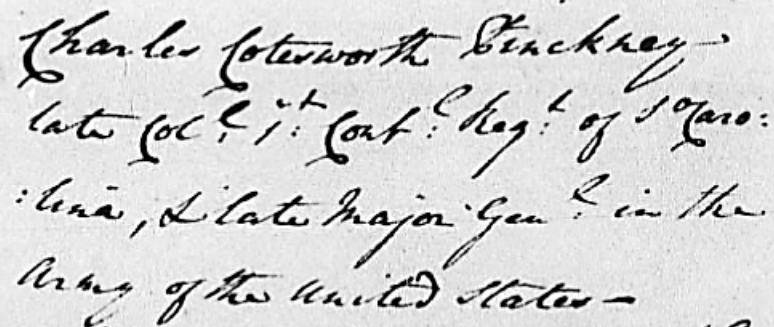 Charles Cotesworth Pinckney
late Col.l 1st. Cont.l Reg.t of So Caro:
:lina, & late Major Gen.l in the
Army of the United States—